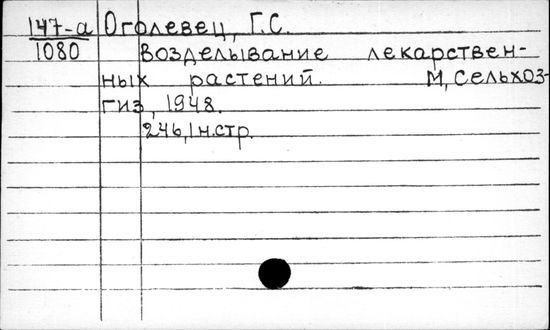 147-а Оголевец, Г.С.
1080 Возделывание лекарствен-
ных растений. М, Сельхоз-
гиз, 1948.
246,1н.стр.